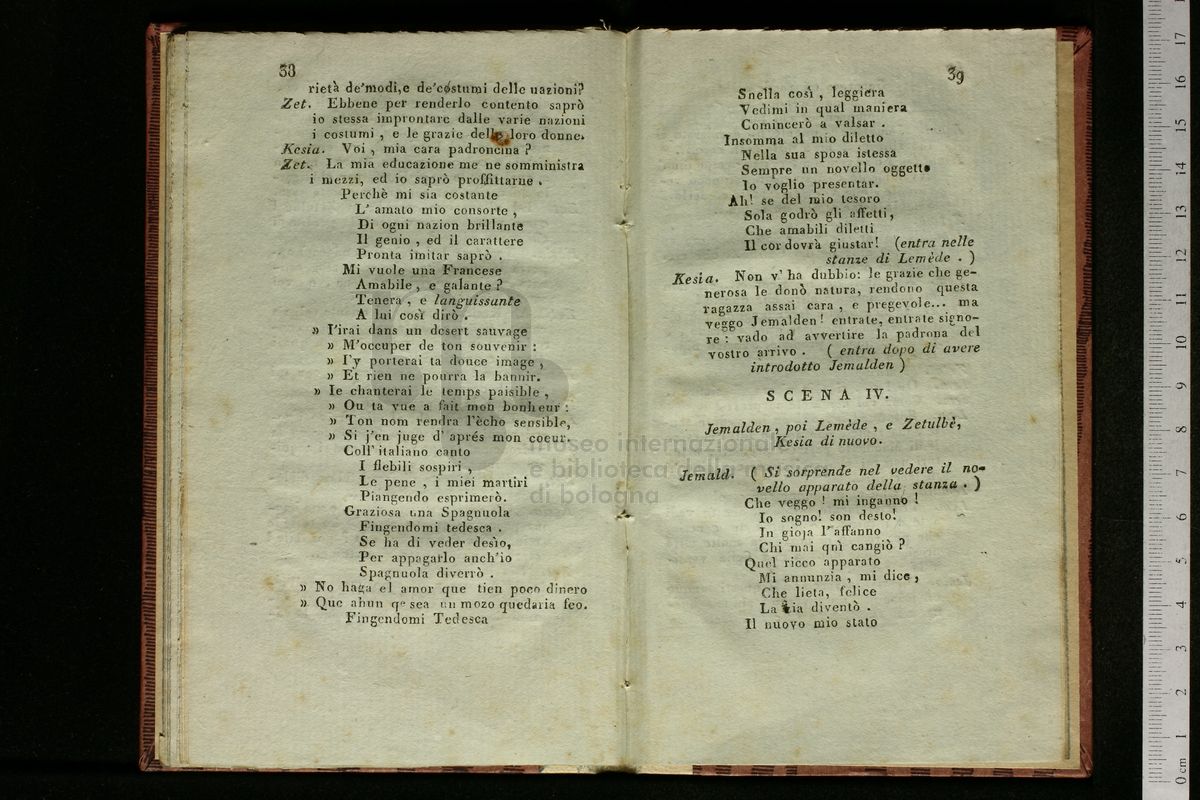 38
rietà de'modi,e de'costumi delle nazioni?
Zet. Ebbene per renderlo contento saprò
io stessa improntare dalle varie nazioni
i costumi , e le grazie delle loro donne.
Kesia. Voi , mia cara padroncina ?
Zet. La mia educazione me ne somministra
i mezzi, ed io saprò profittarne .
Perchè mi sia costante
L' amato mio consorte ,
Di ogni nazion brillante
Il genio , ed il carattere
Pronta imitar saprò .
Mi vuole una Francese
Amabile , e galante ?
Tenera , e languissante
A lui così dirò .
» I'irai dans un desert sauvage
» M'occuper de ton souvenir :
» I'y porterai ta douce image ,
» Et rien ne pourra la bannir.
» Ie chanterai le temps paisible ,
» Ou ta vue a fait mon bonheur :
» Ton nom rendra l'ècho sensible,
» Si j'en juge d' aprés mon coeur.
Coll' italiano canto
I flebili sospiri ,
Le pene , i miei martiri
Piangendo esprimerò.
Graziosa una Spagnuola
Fingendomi tedesca .
Se ha di veder desìo,
Per appagarlo anch'io
Spagnuola diverrò .
» No haga el amor que tien poco dinero
» Que ahun qe sea un mozo quedaria feo.
Fingendomi Tedesca
39
Snella così , leggiera
Vedimi in qual maniera
Comincerò a valsar .
Insomma al mio diletto
Nella sua sposa istessa
Sempre un novello oggetto
Io voglio presentar.
Ah! se del mio tesoro
Sola godrò gli affetti,
Che amabili diletti
Il cor dovrà giustar! (entra nelle
stanze di Lemède . )
Kesia. Non v' ha dubbio: le grazie che ge-
nerosa le donò natura, rendono questa
ragazza assai cara , e pregevole... ma
veggo Jemalden ! entrate, entrate signo-
re : vado ad avvertire la padrona del
vostro arrivo . ( entra dopo di avere
introdotto Jemalden )
SCENA IV.
Jemalden , poi Lemède , e Zetulbè,
Kesia di nuovo.
Jemald. ( Si sorprende nel vedere il no-
vello apparato della stanza . )
Che veggo ! mi inganno !
Io sogno! son desto!
In gioja l'affanno
Chi mai quì cangiò ?
Quel ricco apparato
Mi annunzia , mi dice ,
Che lieta, felice
La zia diventò .
Il nuovo mio stato
museo internazionale
e biblioteca della musica
di bologna
17
16
15
14
13
12
11
10
9
8
7
6
5
4
3
2
1
0 cm